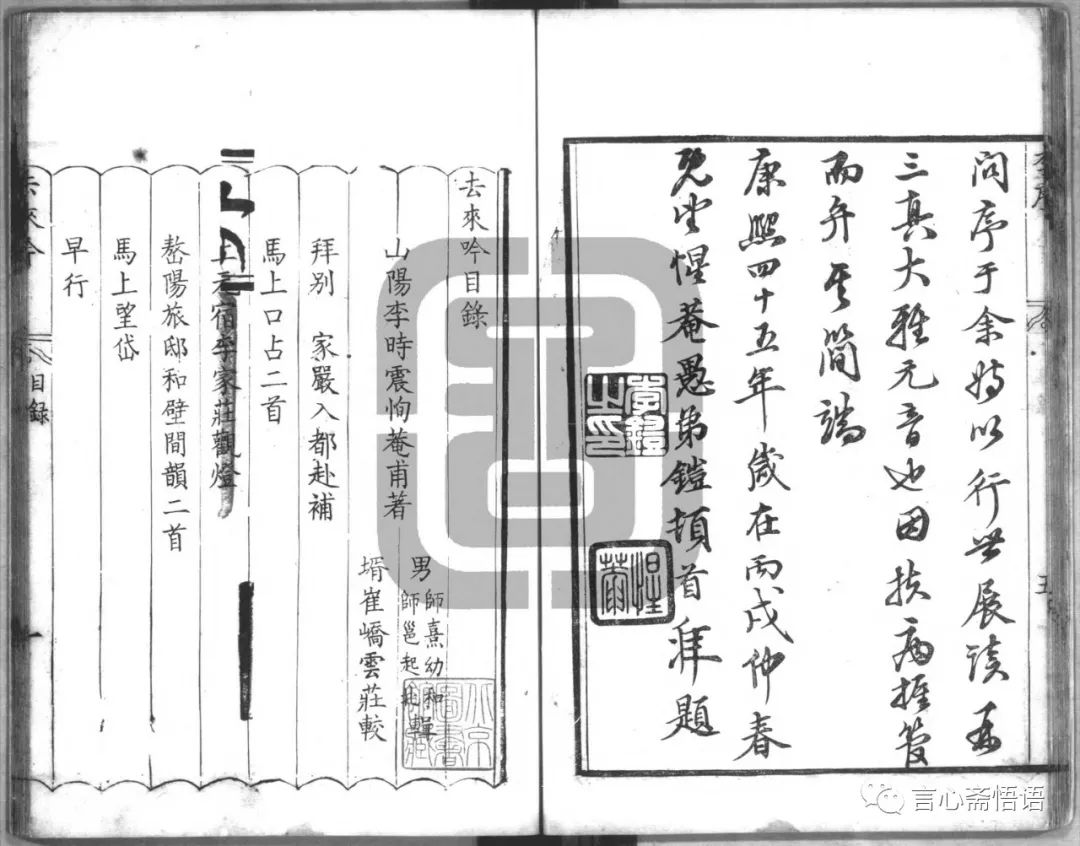 問序于余将以行世展讀再
三真大雅元音也因扶病握管
而弁其簡端
康熙四十五年歲在丙戌仲春
惺菴愚弟鎧頓首拜題
李鎧之印
惺菴
去來吟目錄
山陽李時震恂菴甫著
男師熹幼和
師邕起 輯
壻崔嶠雲莊較
拜别 家嚴入都赴補
馬上口占二首
上元宿李家莊觀燈
嶅陽旅邸和壁間韻二首
馬上望岱
早行
去來吟
目錄
一
言心斋悟语